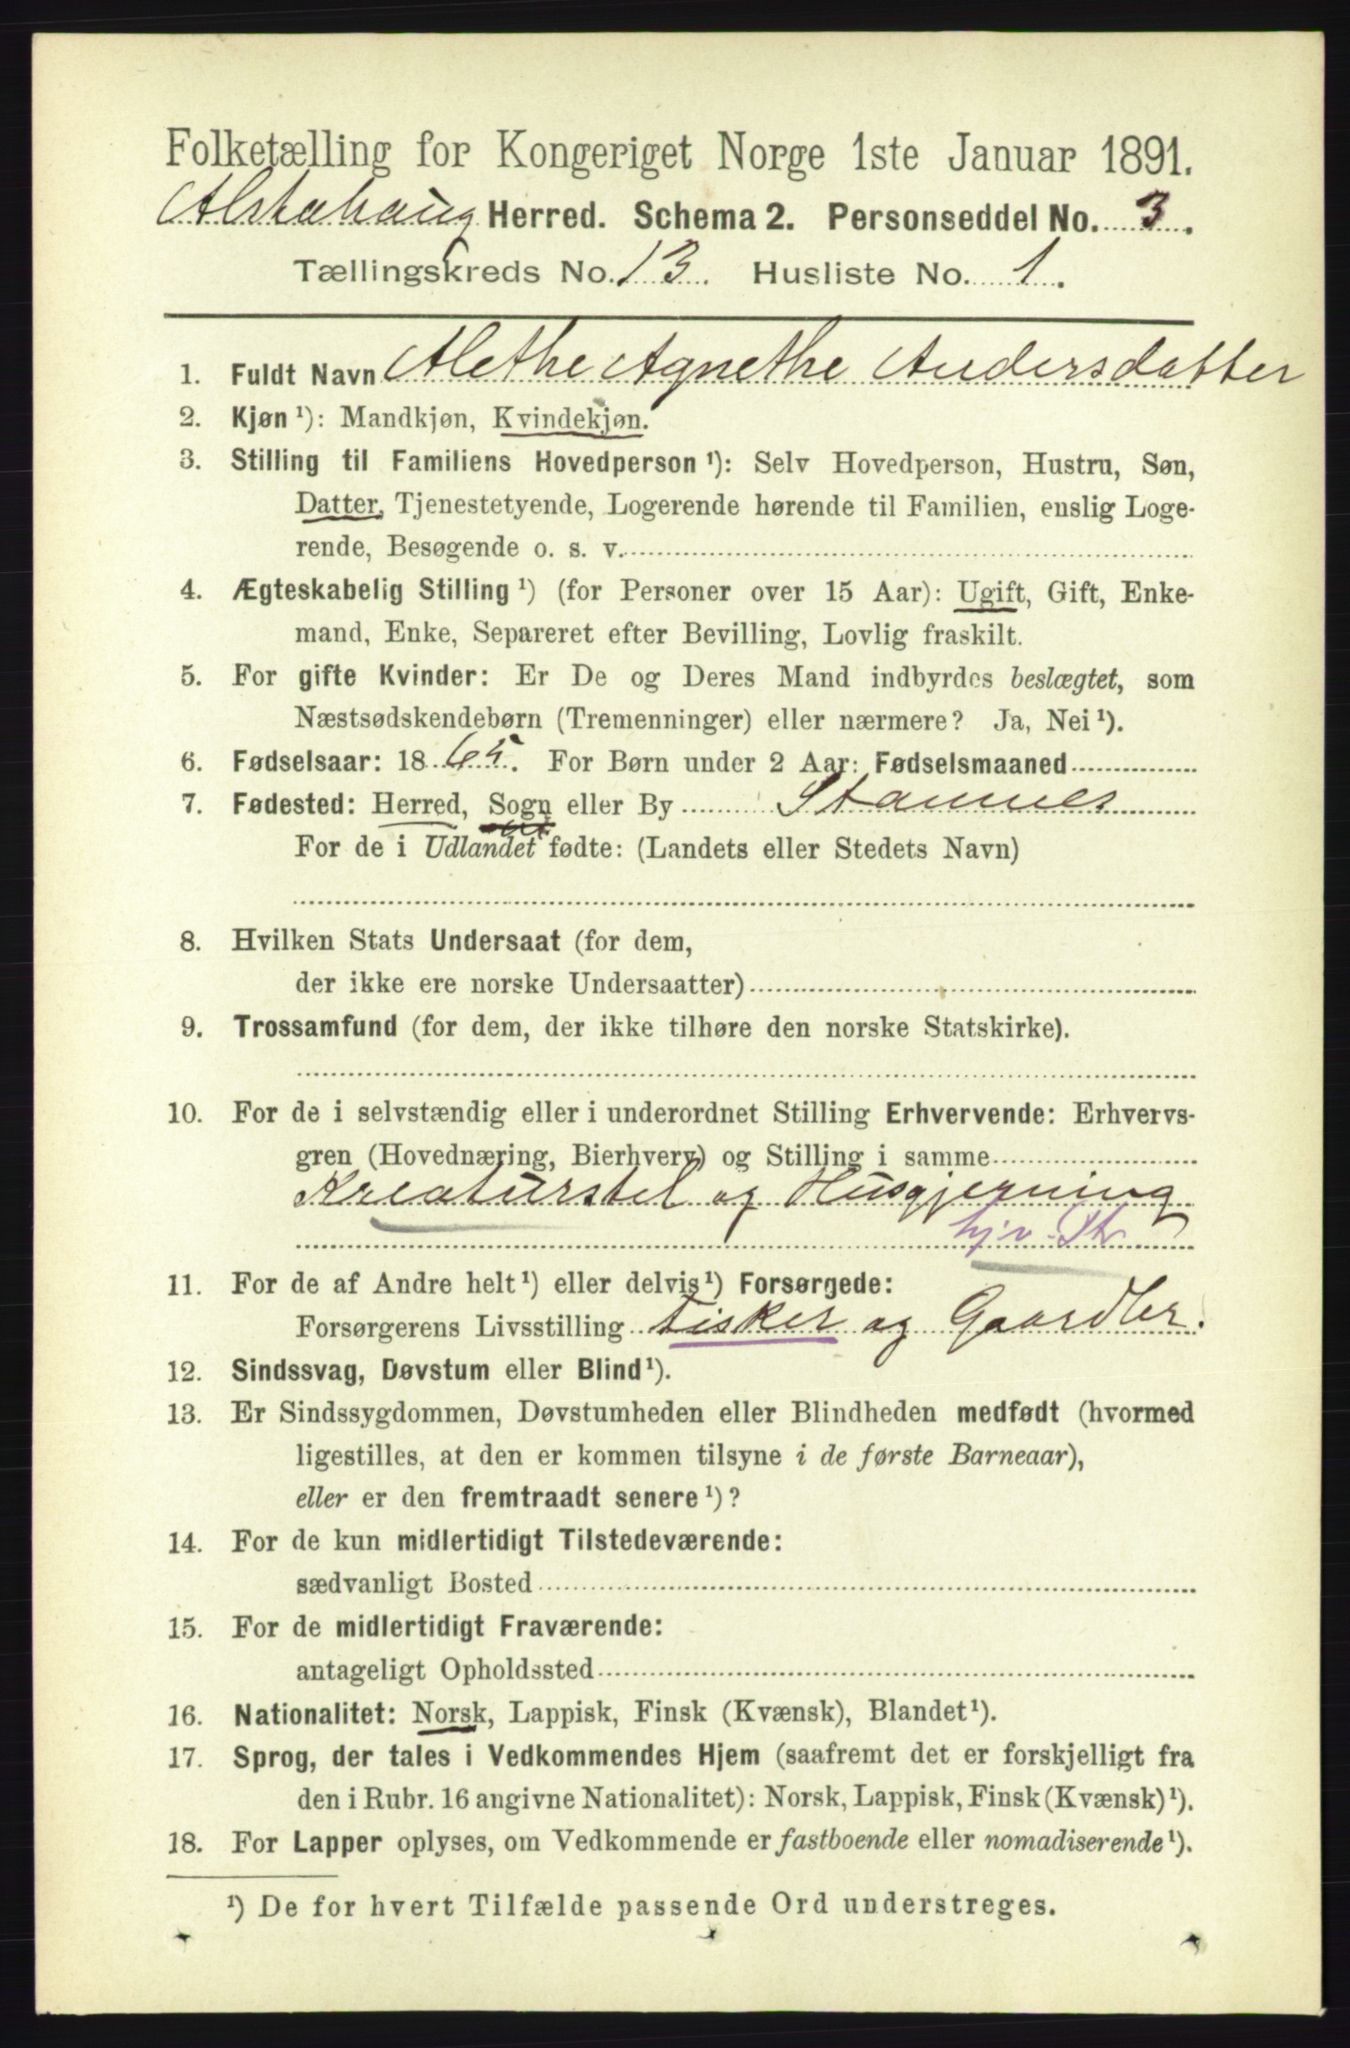 Folketælling for Kongeriget Norge 1ste Januar 1891.
Alstahaug Herred. Schema 2. Personseddel No. 3.
Tællingskreds No. 13. Husliste No. 1.
1. Fuldt Navn Alethe Agnethe Andersdatter
2. Kjøn ¹): Mandkjøn, Kvindekjøn.
3. Stilling til Familiens Hovedperson ¹): Selv Hovedperson, Hustru, Søn,
Datter, Tjenestetyende, Logerende hørende til Familien, enslig Loge-
rende, Besøgende o. s. v.
4. Ægteskabelig Stilling ¹) (for Personer over 15 Aar): Ugift, Gift, Enke-
mand, Enke, Separeret efter Bevilling, Lovlig fraskilt.
5. For gifte Kvinder: Er De og Deres Mand indbyrdes beslægtet, som
Næstsødskendebørn (Tremenninger) eller nærmere? Ja, Nei ¹).
6. Fødselsaar: 1865. For Børn under 2 Aar: Fødselsmaaned
7. Fødested: Herred, Sogn eller By Stamnes
For de i Udlandet fødte: (Landets eller Stedets Navn)
8. Hvilken Stats Undersaat (for dem,
der ikke ere norske Undersaatter)
9. Trossamfund (for dem, der ikke tilhøre den norske Statskirke).
10. For de i selvstændig eller i underordnet Stilling Erhvervende: Erhvervs-
gren (Hovednæring, Bierhverv) og Stilling i samme
Kreaturstel og Husgjerning
11. For de af Andre helt ¹) eller delvis ¹) Forsørgede:
Forsørgerens Livsstilling Fisker og Gaardbr.
12. Sindssvag, Døvstum eller Blind ¹).
13. Er Sindssygdommen, Døvstumheden eller Blindheden medfødt (hvormed
ligestilles, at den er kommen tilsyne i de første Barneaar),
eller er den fremtraadt senere ¹)?
14. For de kun midlertidigt Tilstedeværende:
sædvanligt Bosted
15. For de midlertidigt Fraværende:
antageligt Opholdssted
16. Nationalitet: Norsk, Lappisk, Finsk (Kvænsk), Blandet ¹).
17. Sprog, der tales i Vedkommendes Hjem (saafremt det er forskjelligt fra
den i Rubr. 16 angivne Nationalitet): Norsk, Lappisk, Finsk (Kvænsk) ¹).
18. For Lapper oplyses, om Vedkommende er fastboende eller nomadiserende ¹).
¹) De for hvert Tilfælde passende Ord understreges.